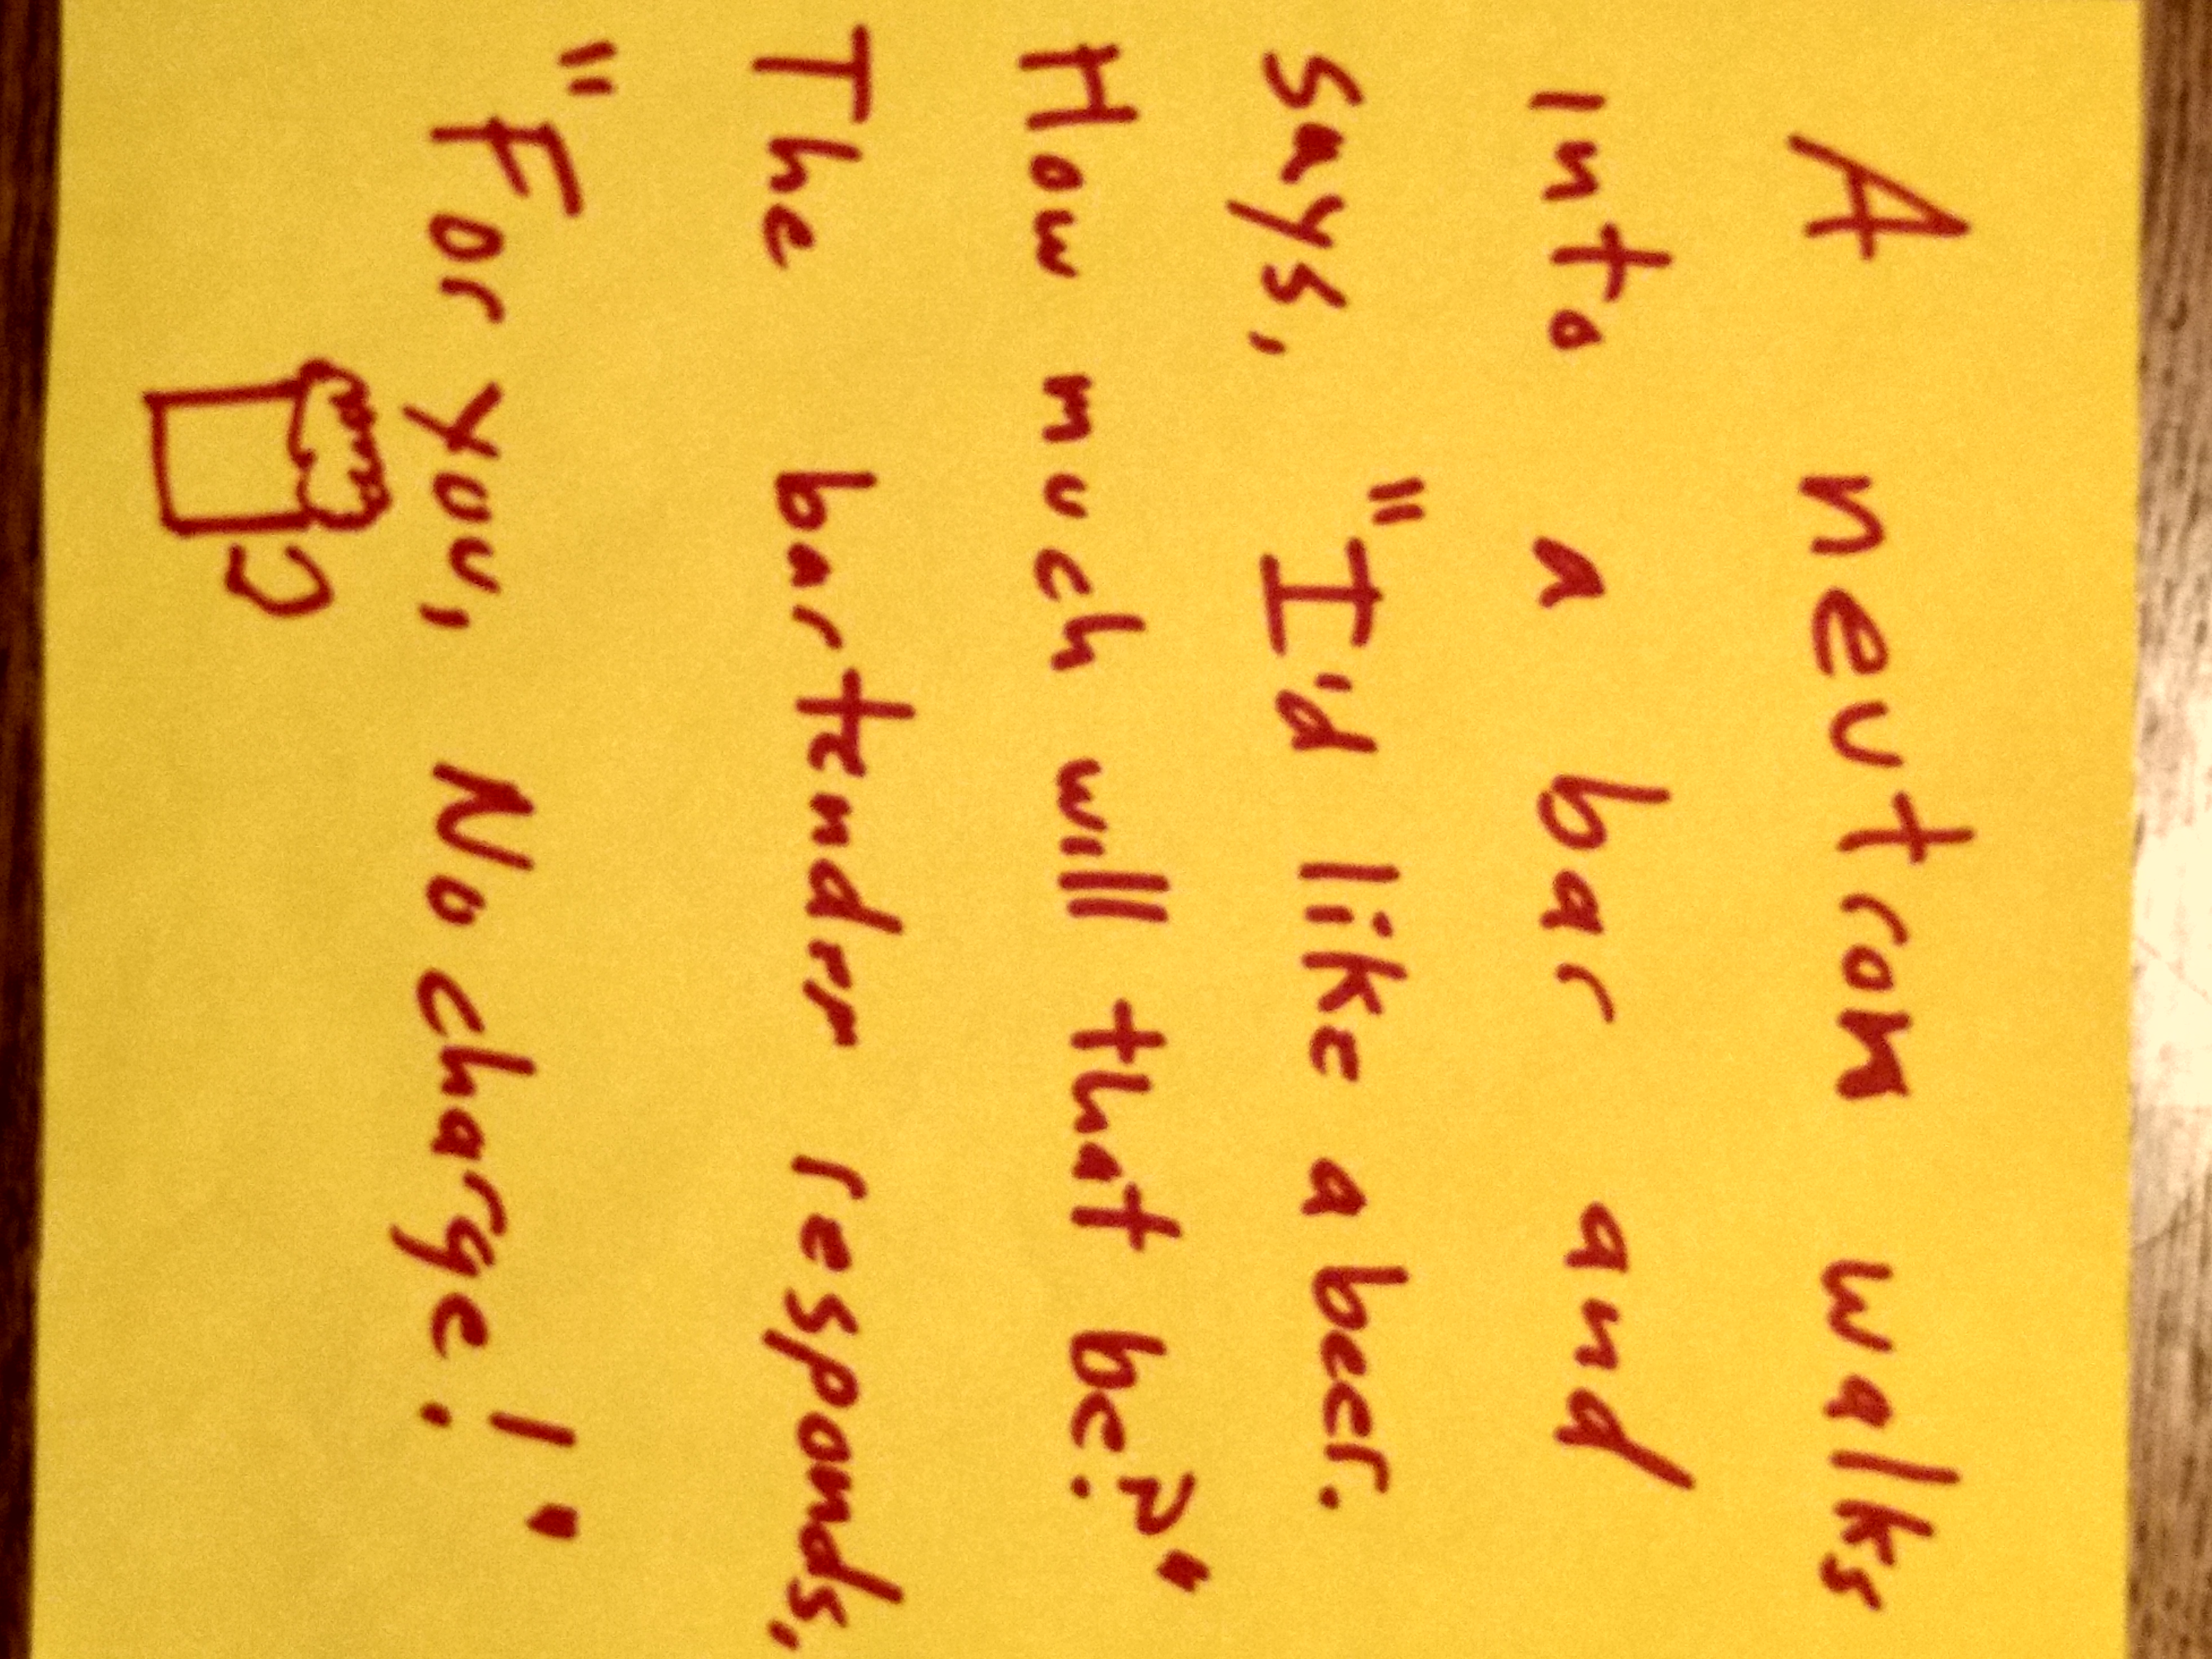 A neutron walks
into a bar and
says, "I'd like a beer.
How much will that be?"
The bartender responds,
"For you, No charge!"